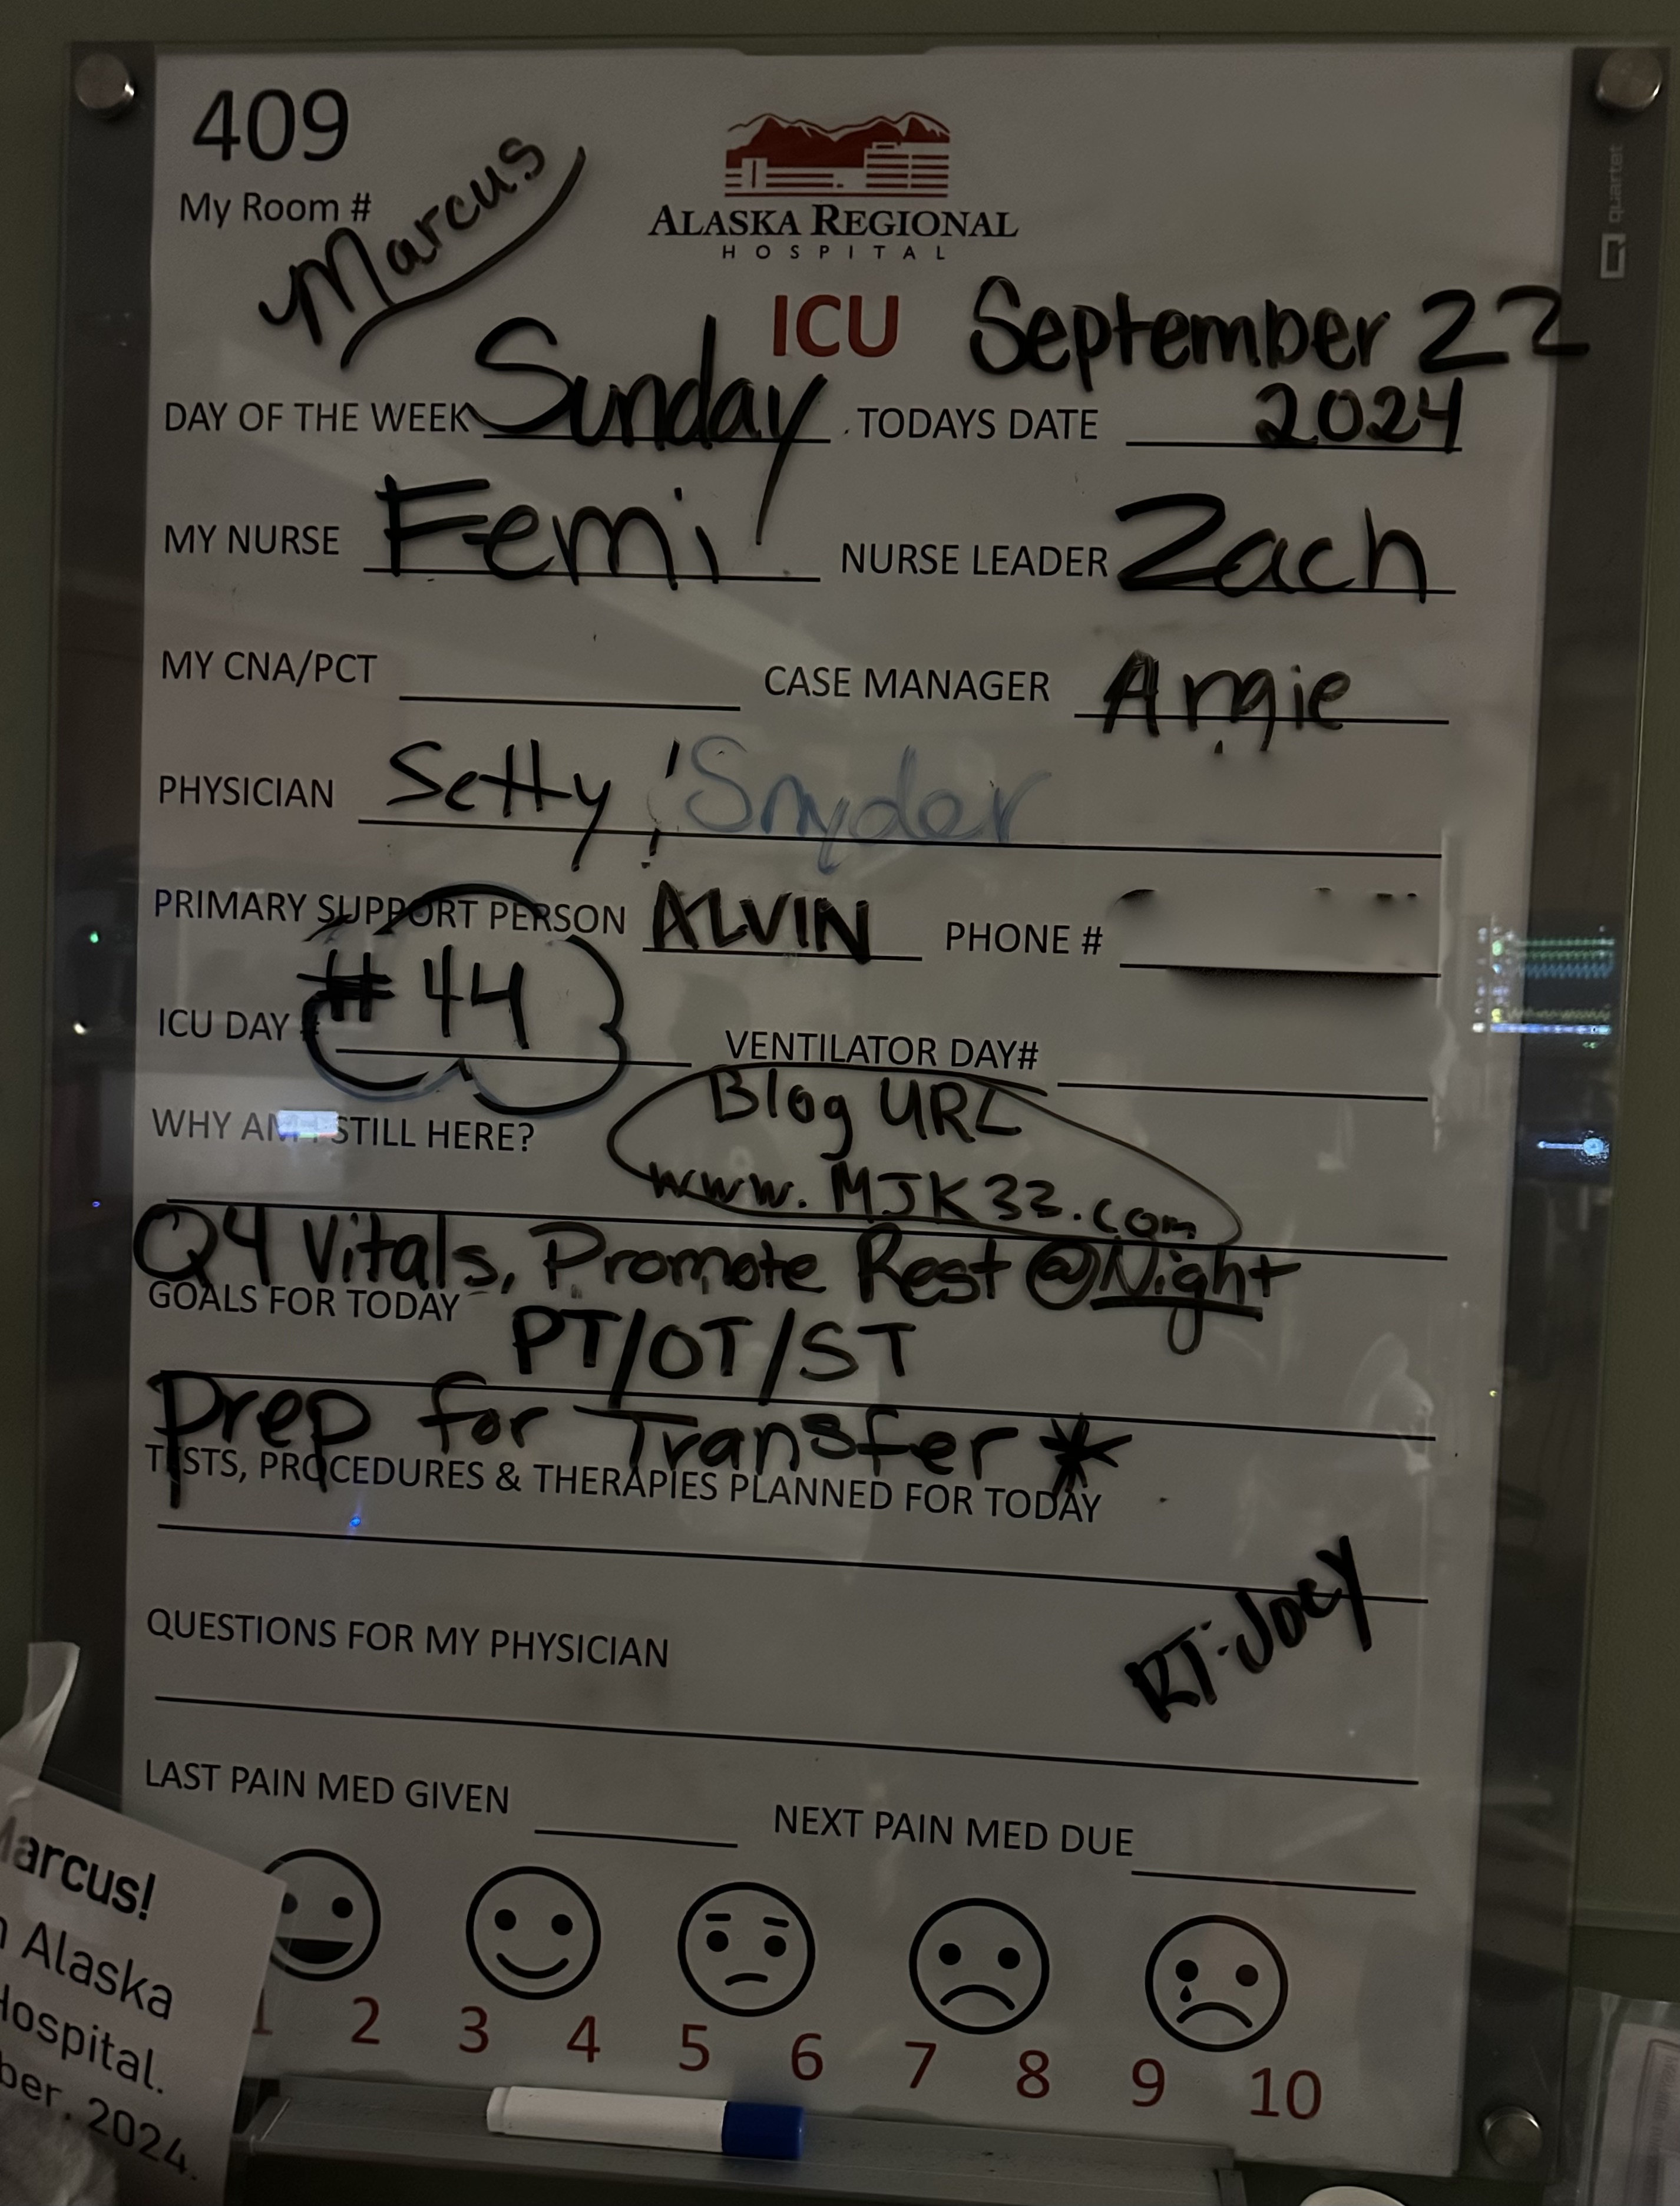 409
My Room #
Marcus
ALASKA REGIONAL
HOSPITAL
quartet
ICU
September 22
DAY OF THE WEEK Sunday TODAYS DATE 2024
MY NURSE Femi NURSE LEADER Zach
MY CNA/PCT CASE MANAGER Angie
PHYSICIAN Setty / Snyder
PRIMARY SUPPORT PERSON ALVIN PHONE #
ICU DAY # #44 VENTILATOR DAY#
WHY AM I STILL HERE?
Blog URL
www.MJK33.com
Q4 Vitals, Promote Rest @ Night
GOALS FOR TODAY
PT/OT/ST
Prep for Transfer *
TESTS, PROCEDURES & THERAPIES PLANNED FOR TODAY
RT: Joey
QUESTIONS FOR MY PHYSICIAN
LAST PAIN MED GIVEN NEXT PAIN MED DUE
1 2 3 4 5 6 7 8 9 10
arcus!
Alaska
Hospital.
ber, 2024.